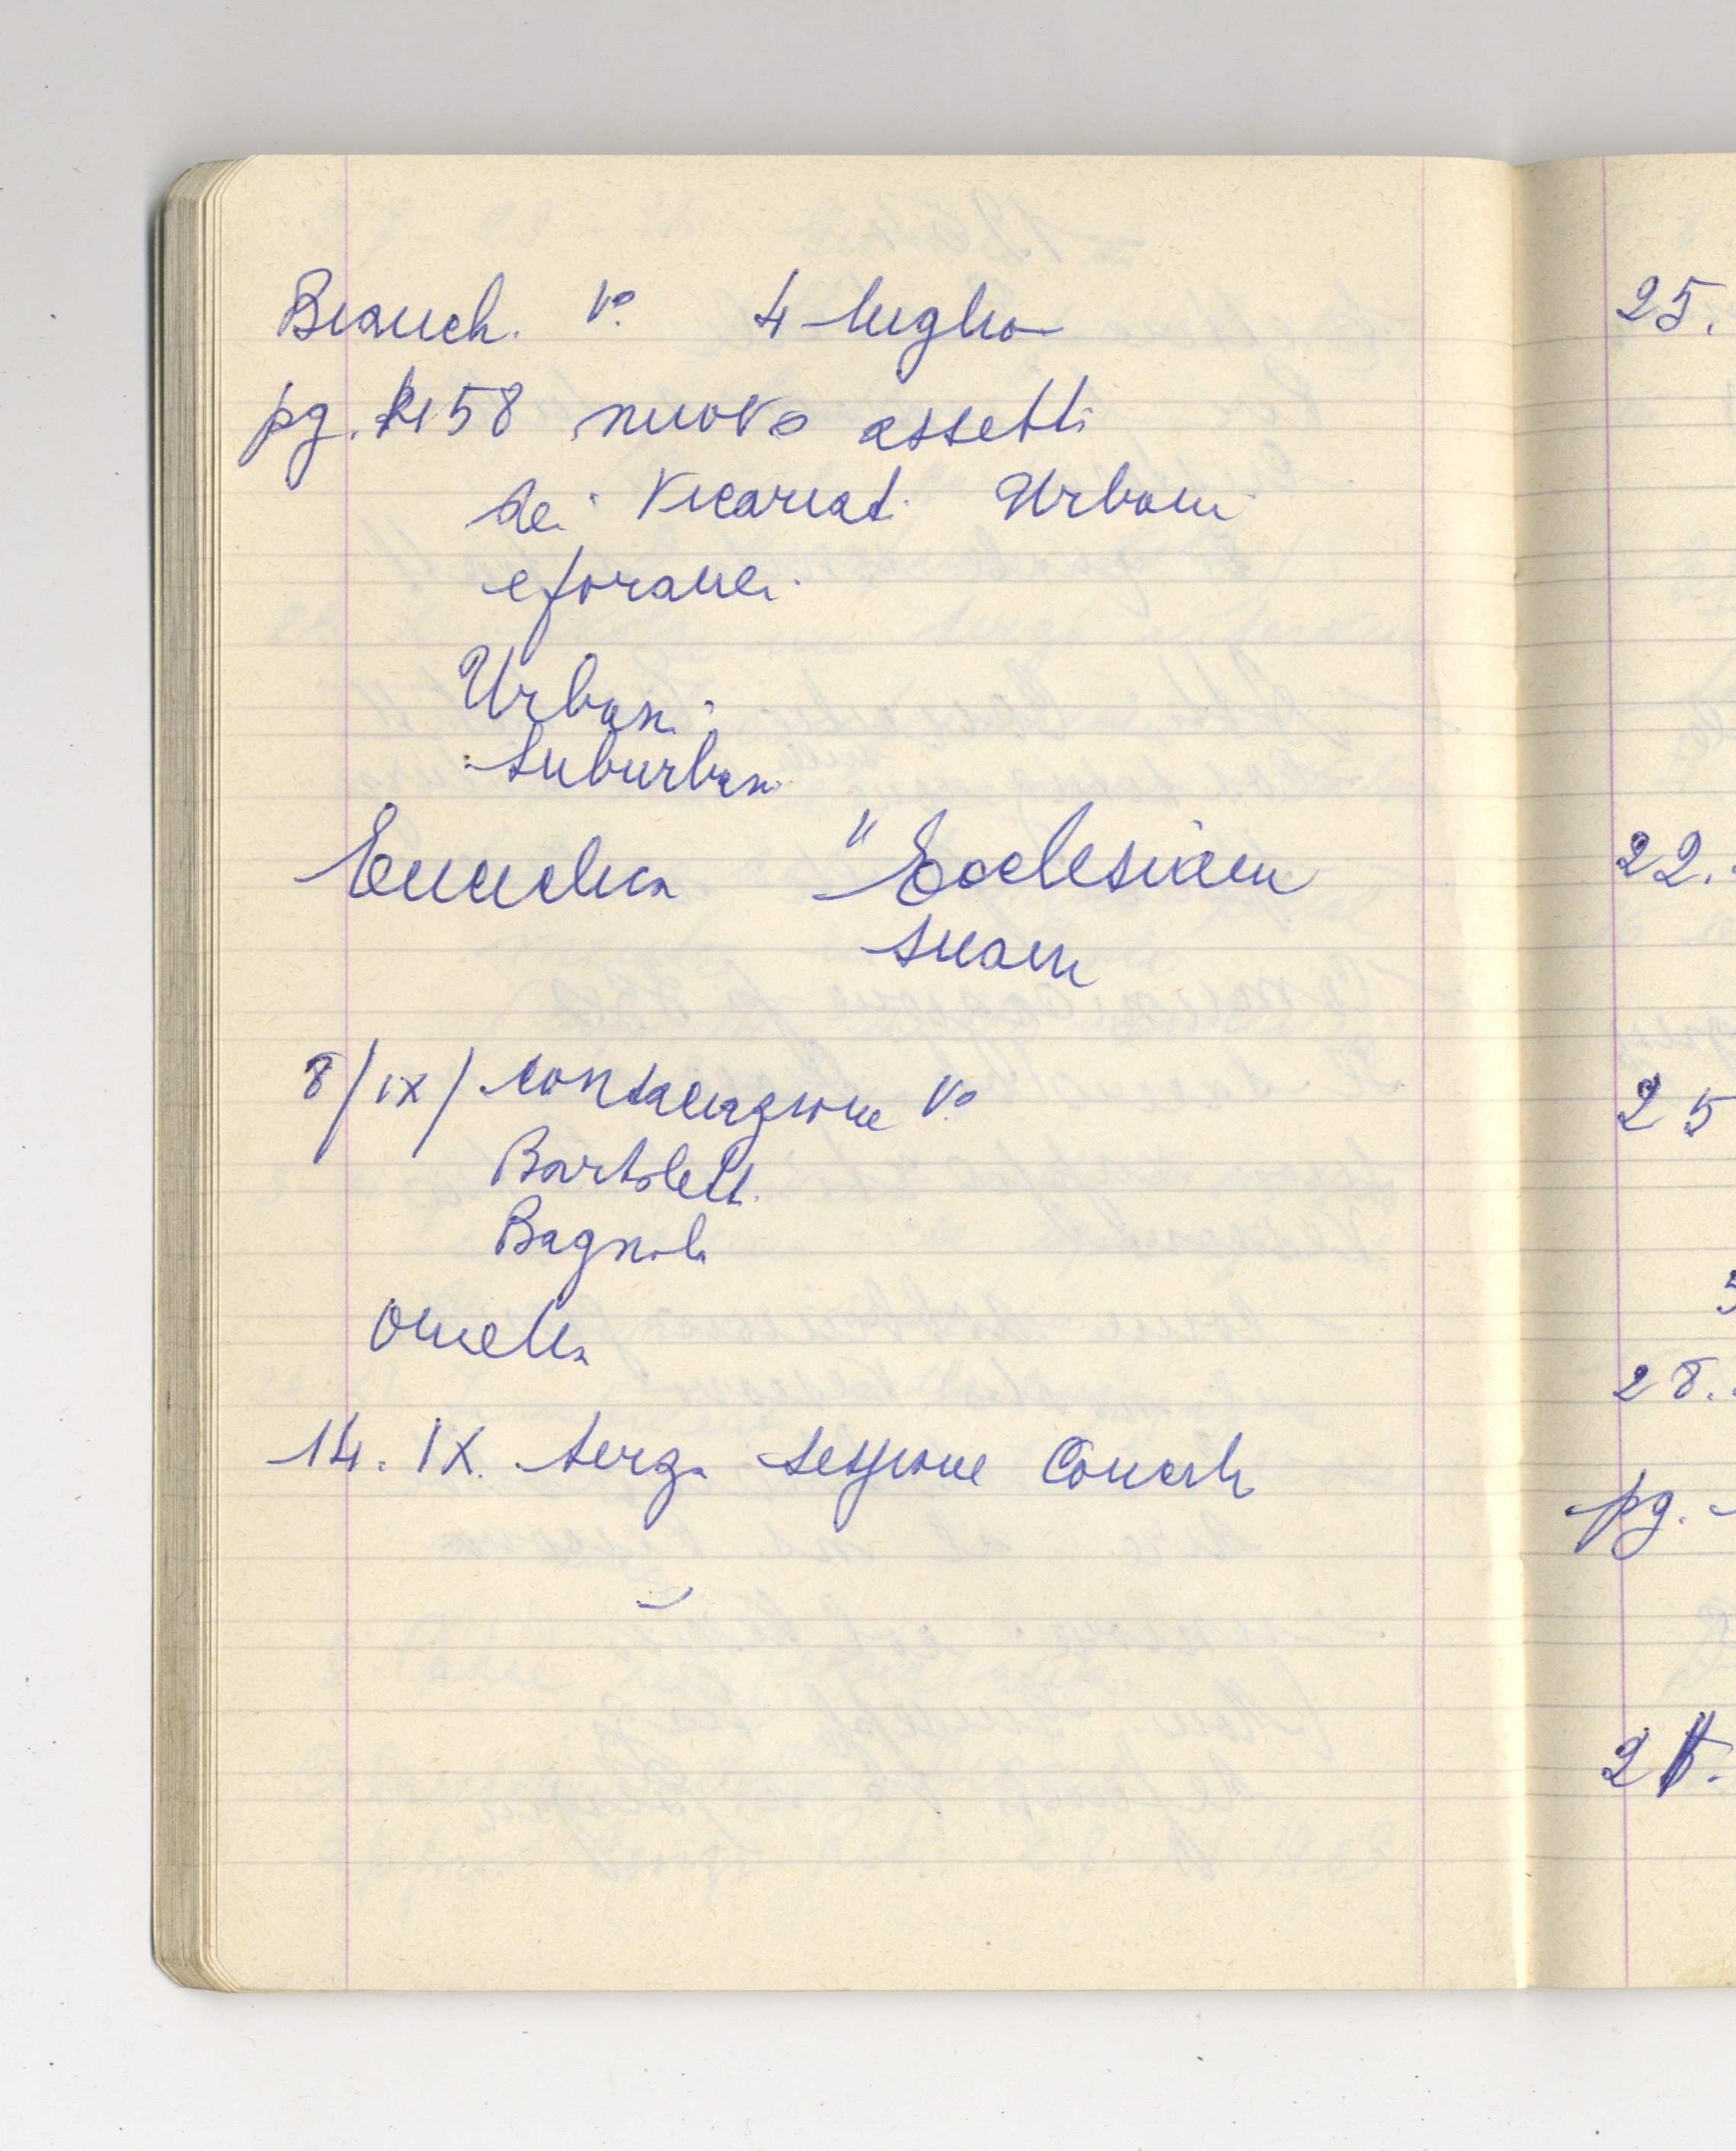 Bianch. Vo 4 luglio
pg. 158 nuovo assetti
dei Vicariati Urbani
e foranei
Urbani
Suburbani
Enciclica "Ecclesiam
suam
8/IX/ consacrazione Vo
Bartoletti
Bagnoli
Omelia
14. IX. terza sessione Concili
25.
22.
25
28.
pg.